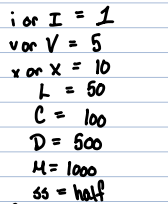 i or I = 1
v or V = 5
x or X = 10
L = 50
C = 100
D = 500
M = 1000
ss = half